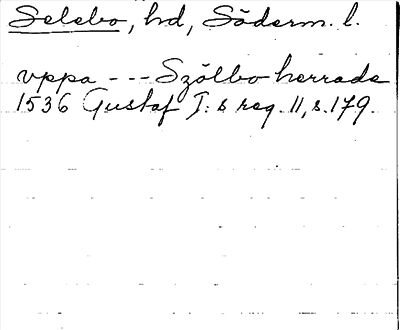 Selebo, hd, Söderm. l.
vppa --- Szölbo herrade
1536 Gustaf I:s reg. 11, s. 179.